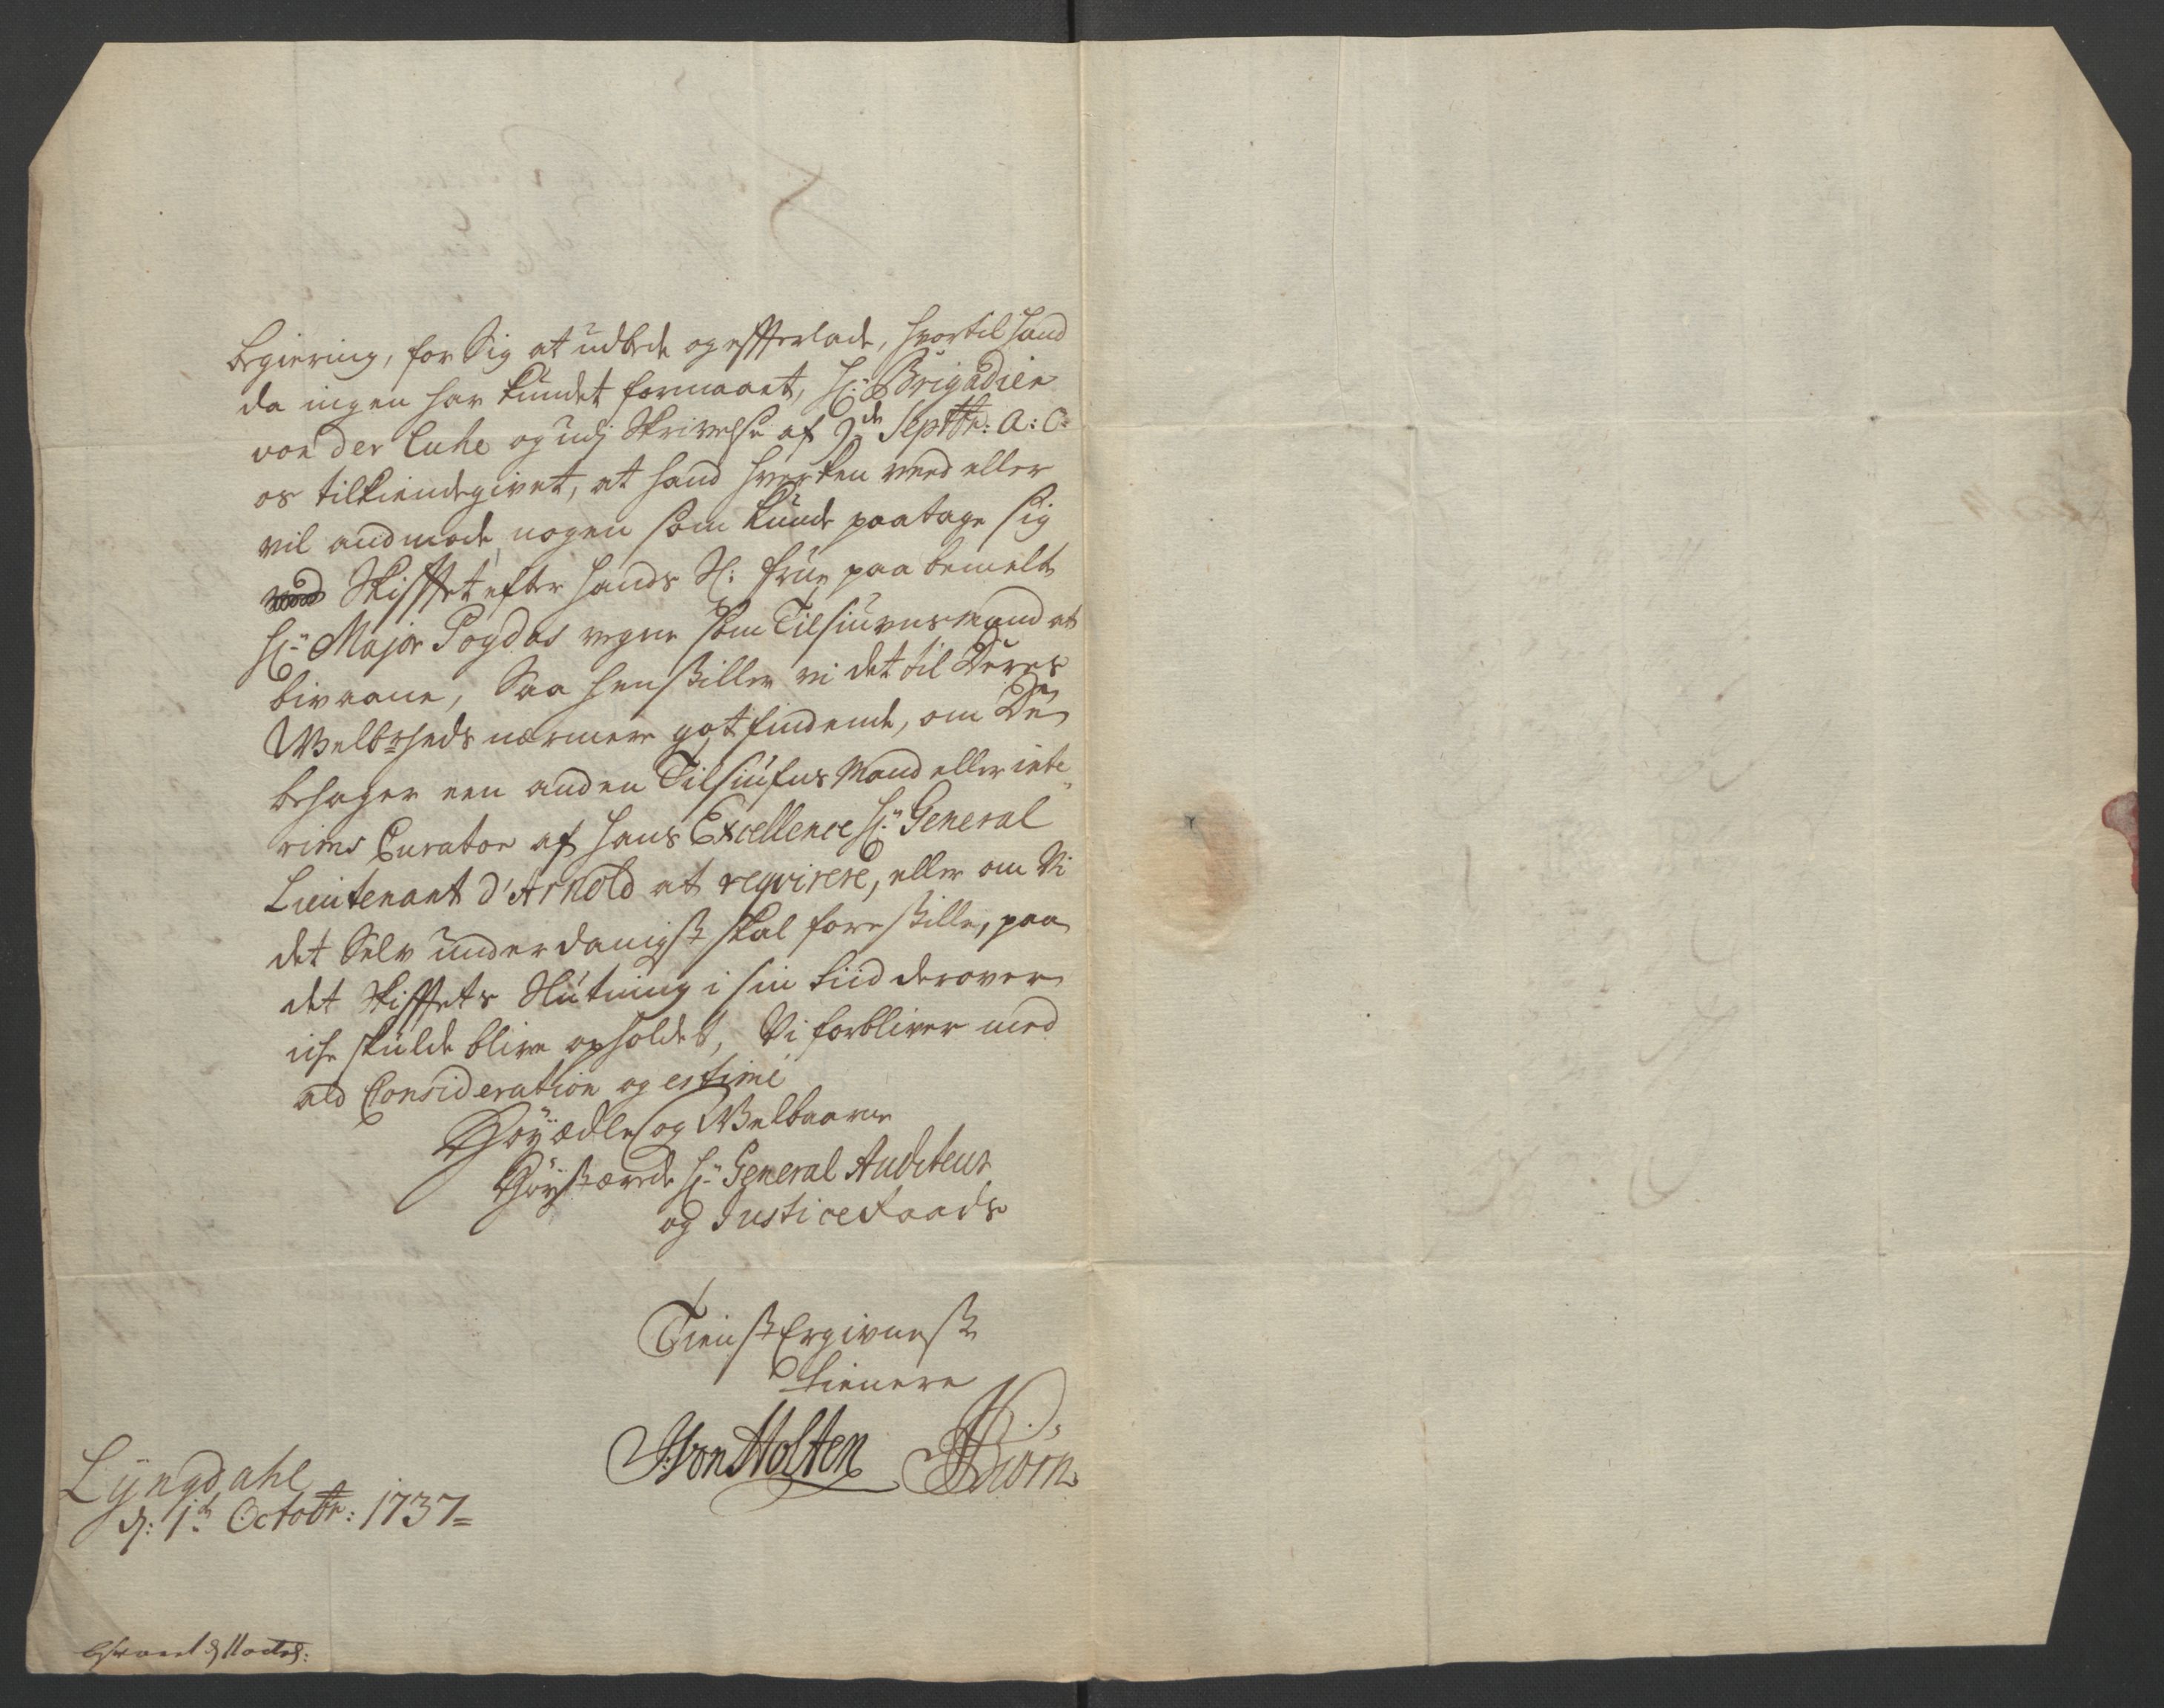 begiering, for Sig at udbede og efterlade, hvortil hand
da ingen har kundet formaaet, Hr: Brigadier
von der Luhe og udj Skrivelse af 9de Septbr: A: C:
os tilkiendegivet, at hand hverken veed eller
vil andmode nogen som kunde paatage sig
Skifftet efter hands Sl: frue paa bemelte
Hr: Major Pogdas vegne som Tilsiunsmand at
bivaane, Saa henstiller vi det til Deres
Welbrheds nærmere gotfindende, om De
behager een anden Tilsiufns Mand eller inte
rims Curator af hans Excellence Hr: General
Lieutenant d'Arnold at reqvirere, eller om Vi
det Selv underdanigst skal forestille, paa
det Skifftets Slutning i sin tiid derover
iche skulde blive opholdet, Vi forbliver med
ald Consideration og estime
Höyædle og Welbaarne
Höystærede Hr: General Auditeur
og Justice Raads
Tienst Ergivnest
tienere
JvonHolten Biörn
Lyngdahl
d: 1te Octobr: 1737=